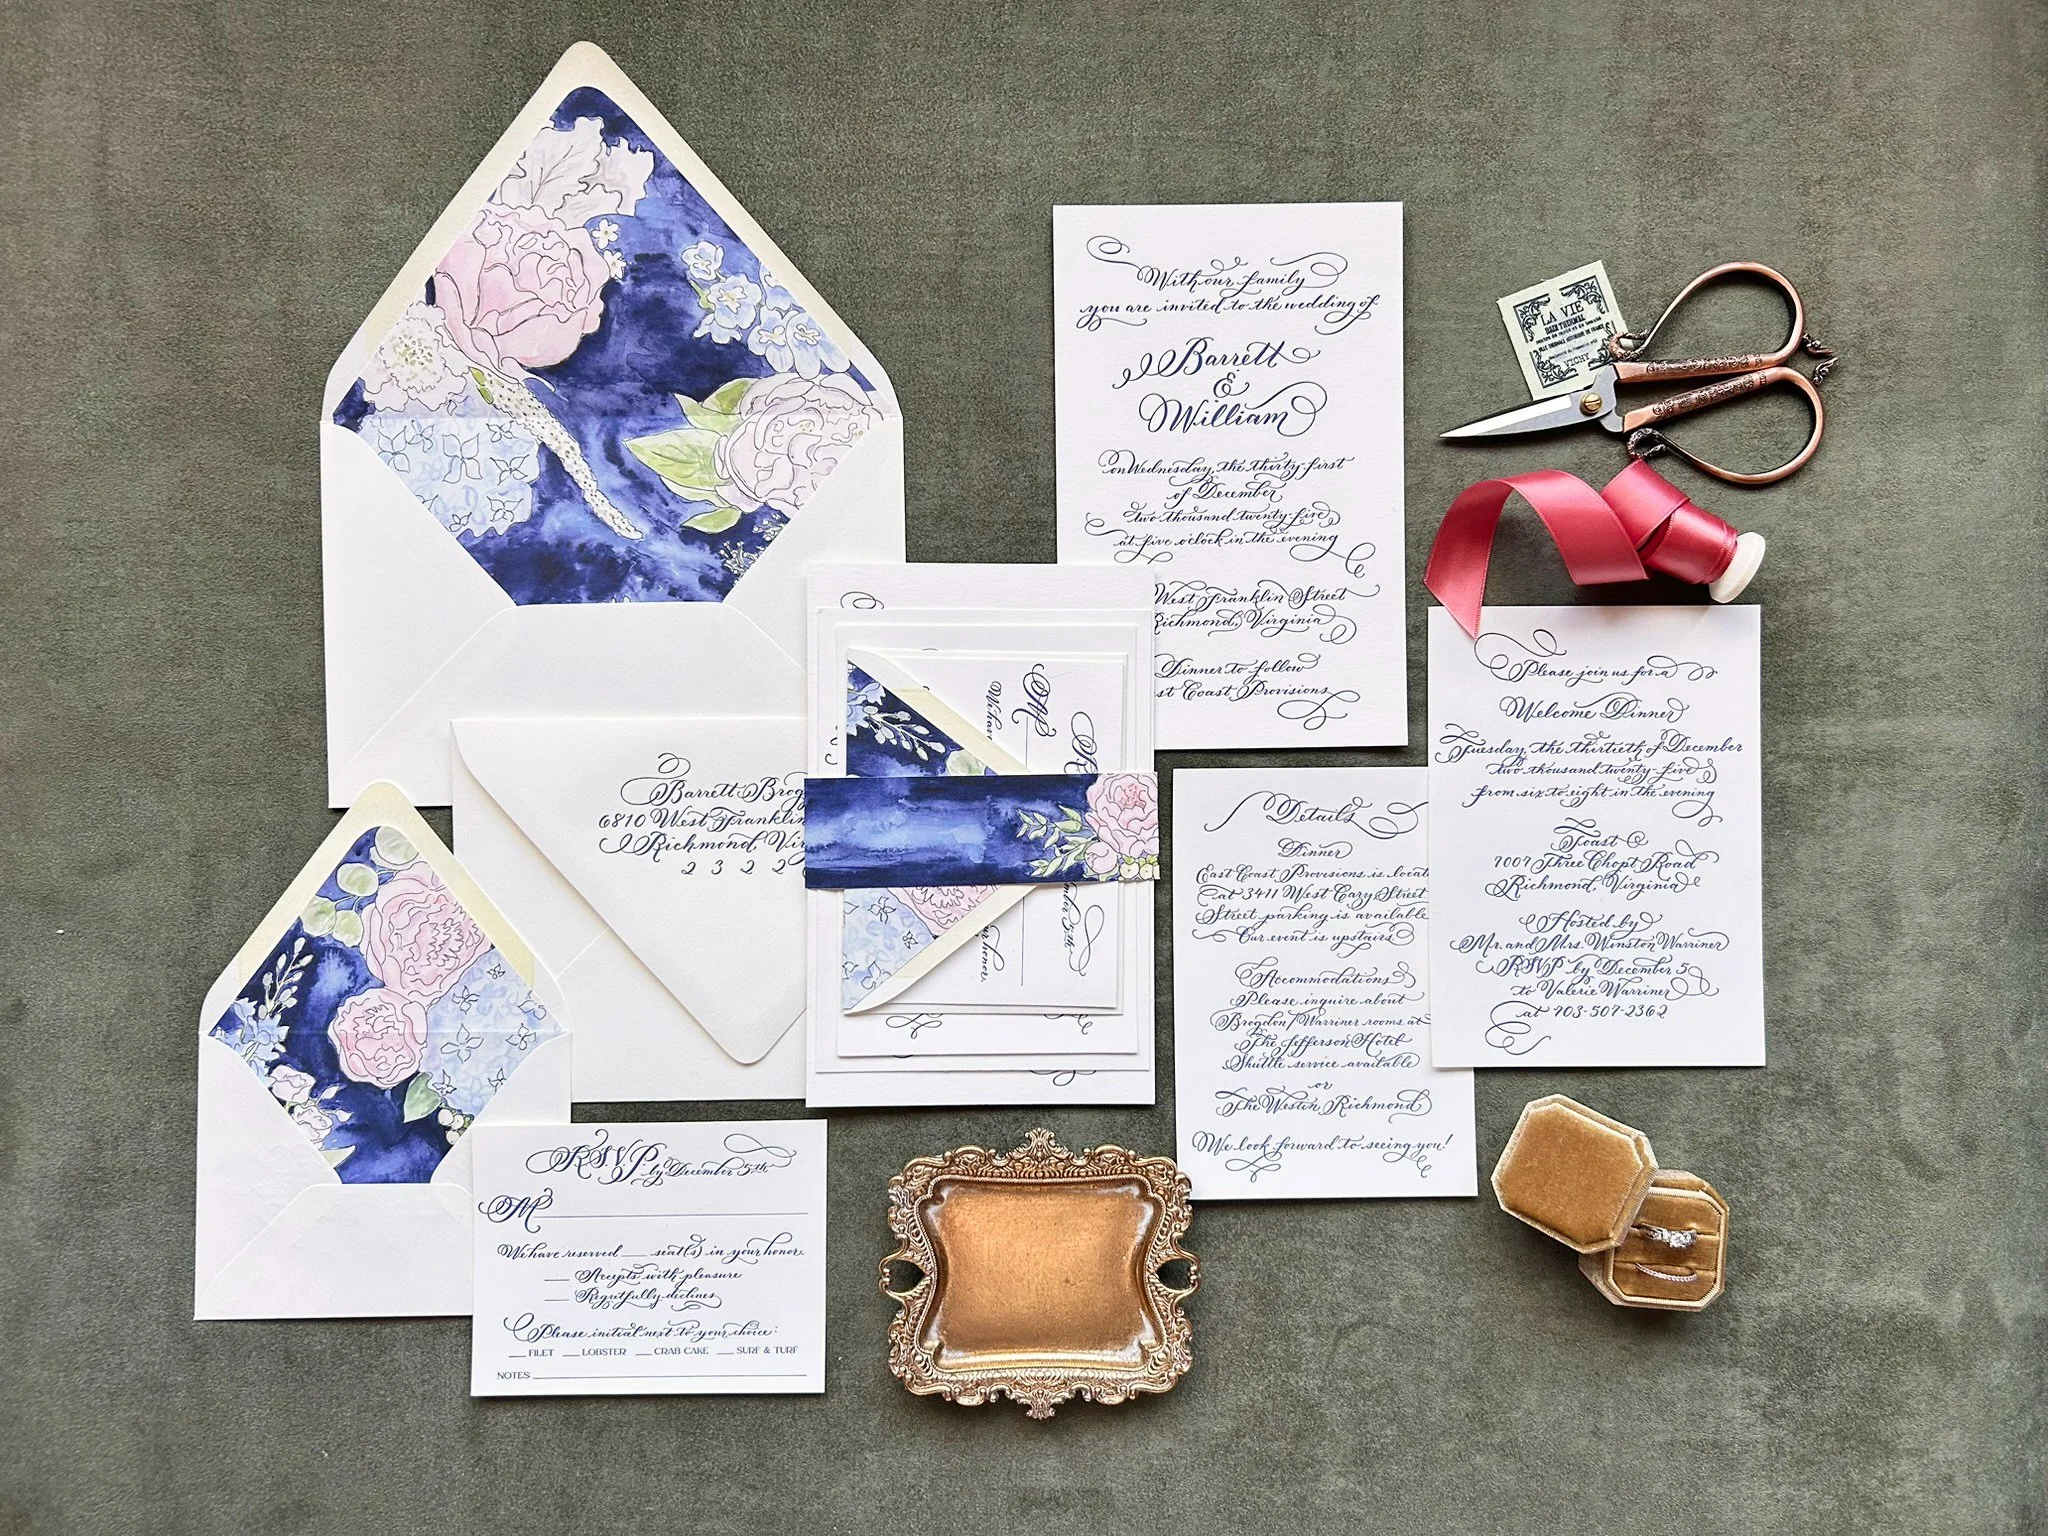 With our family
you are invited to the wedding of
Barrett
&
William
on Wednesday, the thirty-first
of December
two thousand twenty-five
at five o'clock in the evening
West Franklin Street
Richmond, Virginia
Dinner to follow
st Coast Provisions
LA VIE
VICHY
Please join us for a
Welcome Dinner
Tuesday, the thirtieth of December
two thousand twenty-five
from six to eight in the evening
Toast
7007 Three Chopt Road
Richmond, Virginia
Hosted by
Mr. and Mrs. Winston Warriner
RSVP by December 5
to Valerie Warriner
at 703-507-2362
Details
Dinner
East Coast Provisions is locat
at 3411 West Cary Street.
Street parking is available.
Our event is upstairs.
Accommodations
Please inquire about
Brogdon/Warriner rooms at
The Jefferson Hotel
Shuttle service available
or
The Westin, Richmond
We look forward to seeing you!
Barrett Brog
6810 West Franklin
Richmond, Vi
2 3 2 2
M
We hav
5th
ur honor.
RSVP by December 5th
M
We have reserved ___ seat(s) in your honor.
___ Accepts with pleasure
___ Regretfully declines
Please initial next to your choice:
___ FILET ___ LOBSTER ___ CRAB CAKE ___ SURF & TURF
NOTES: